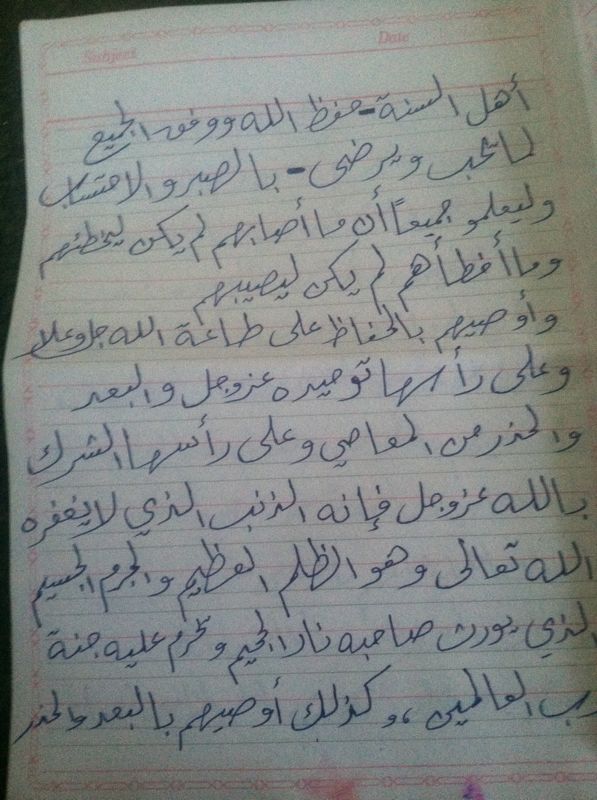 Subject
Date
أهل السنة - حفظ الله ووفق الجميع
لما يحب ويرضى - بالصبر والاحتساب
وليعلمو جميعاً أن ما أصابهم لم يكن ليخطئهم
وما أخطأهم لم يكن ليصيبهم
وأوصيهم بالحفاظ على طاعة الله جل وعلا
وعلى رأسها توحيده عز وجل والبعد
والحذر من المعاصي وعلى رأسها الشرك
بالله عز وجل فإنه الذنب الذي لا يغفره
الله تعالى وهو الظلم العظيم والجرم الجسيم
الذي يورث صاحبه نار الجحيم وتحرم عليه جنة
رب العالمين، وكذلك أوصيهم بالبعد والحذر